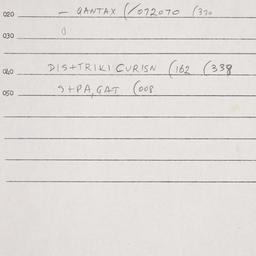 020 — QANTAX (/072070 (330
030 0
040 DIS+TRIKI CURISN (162 (338
050 S+PA, GAT (008